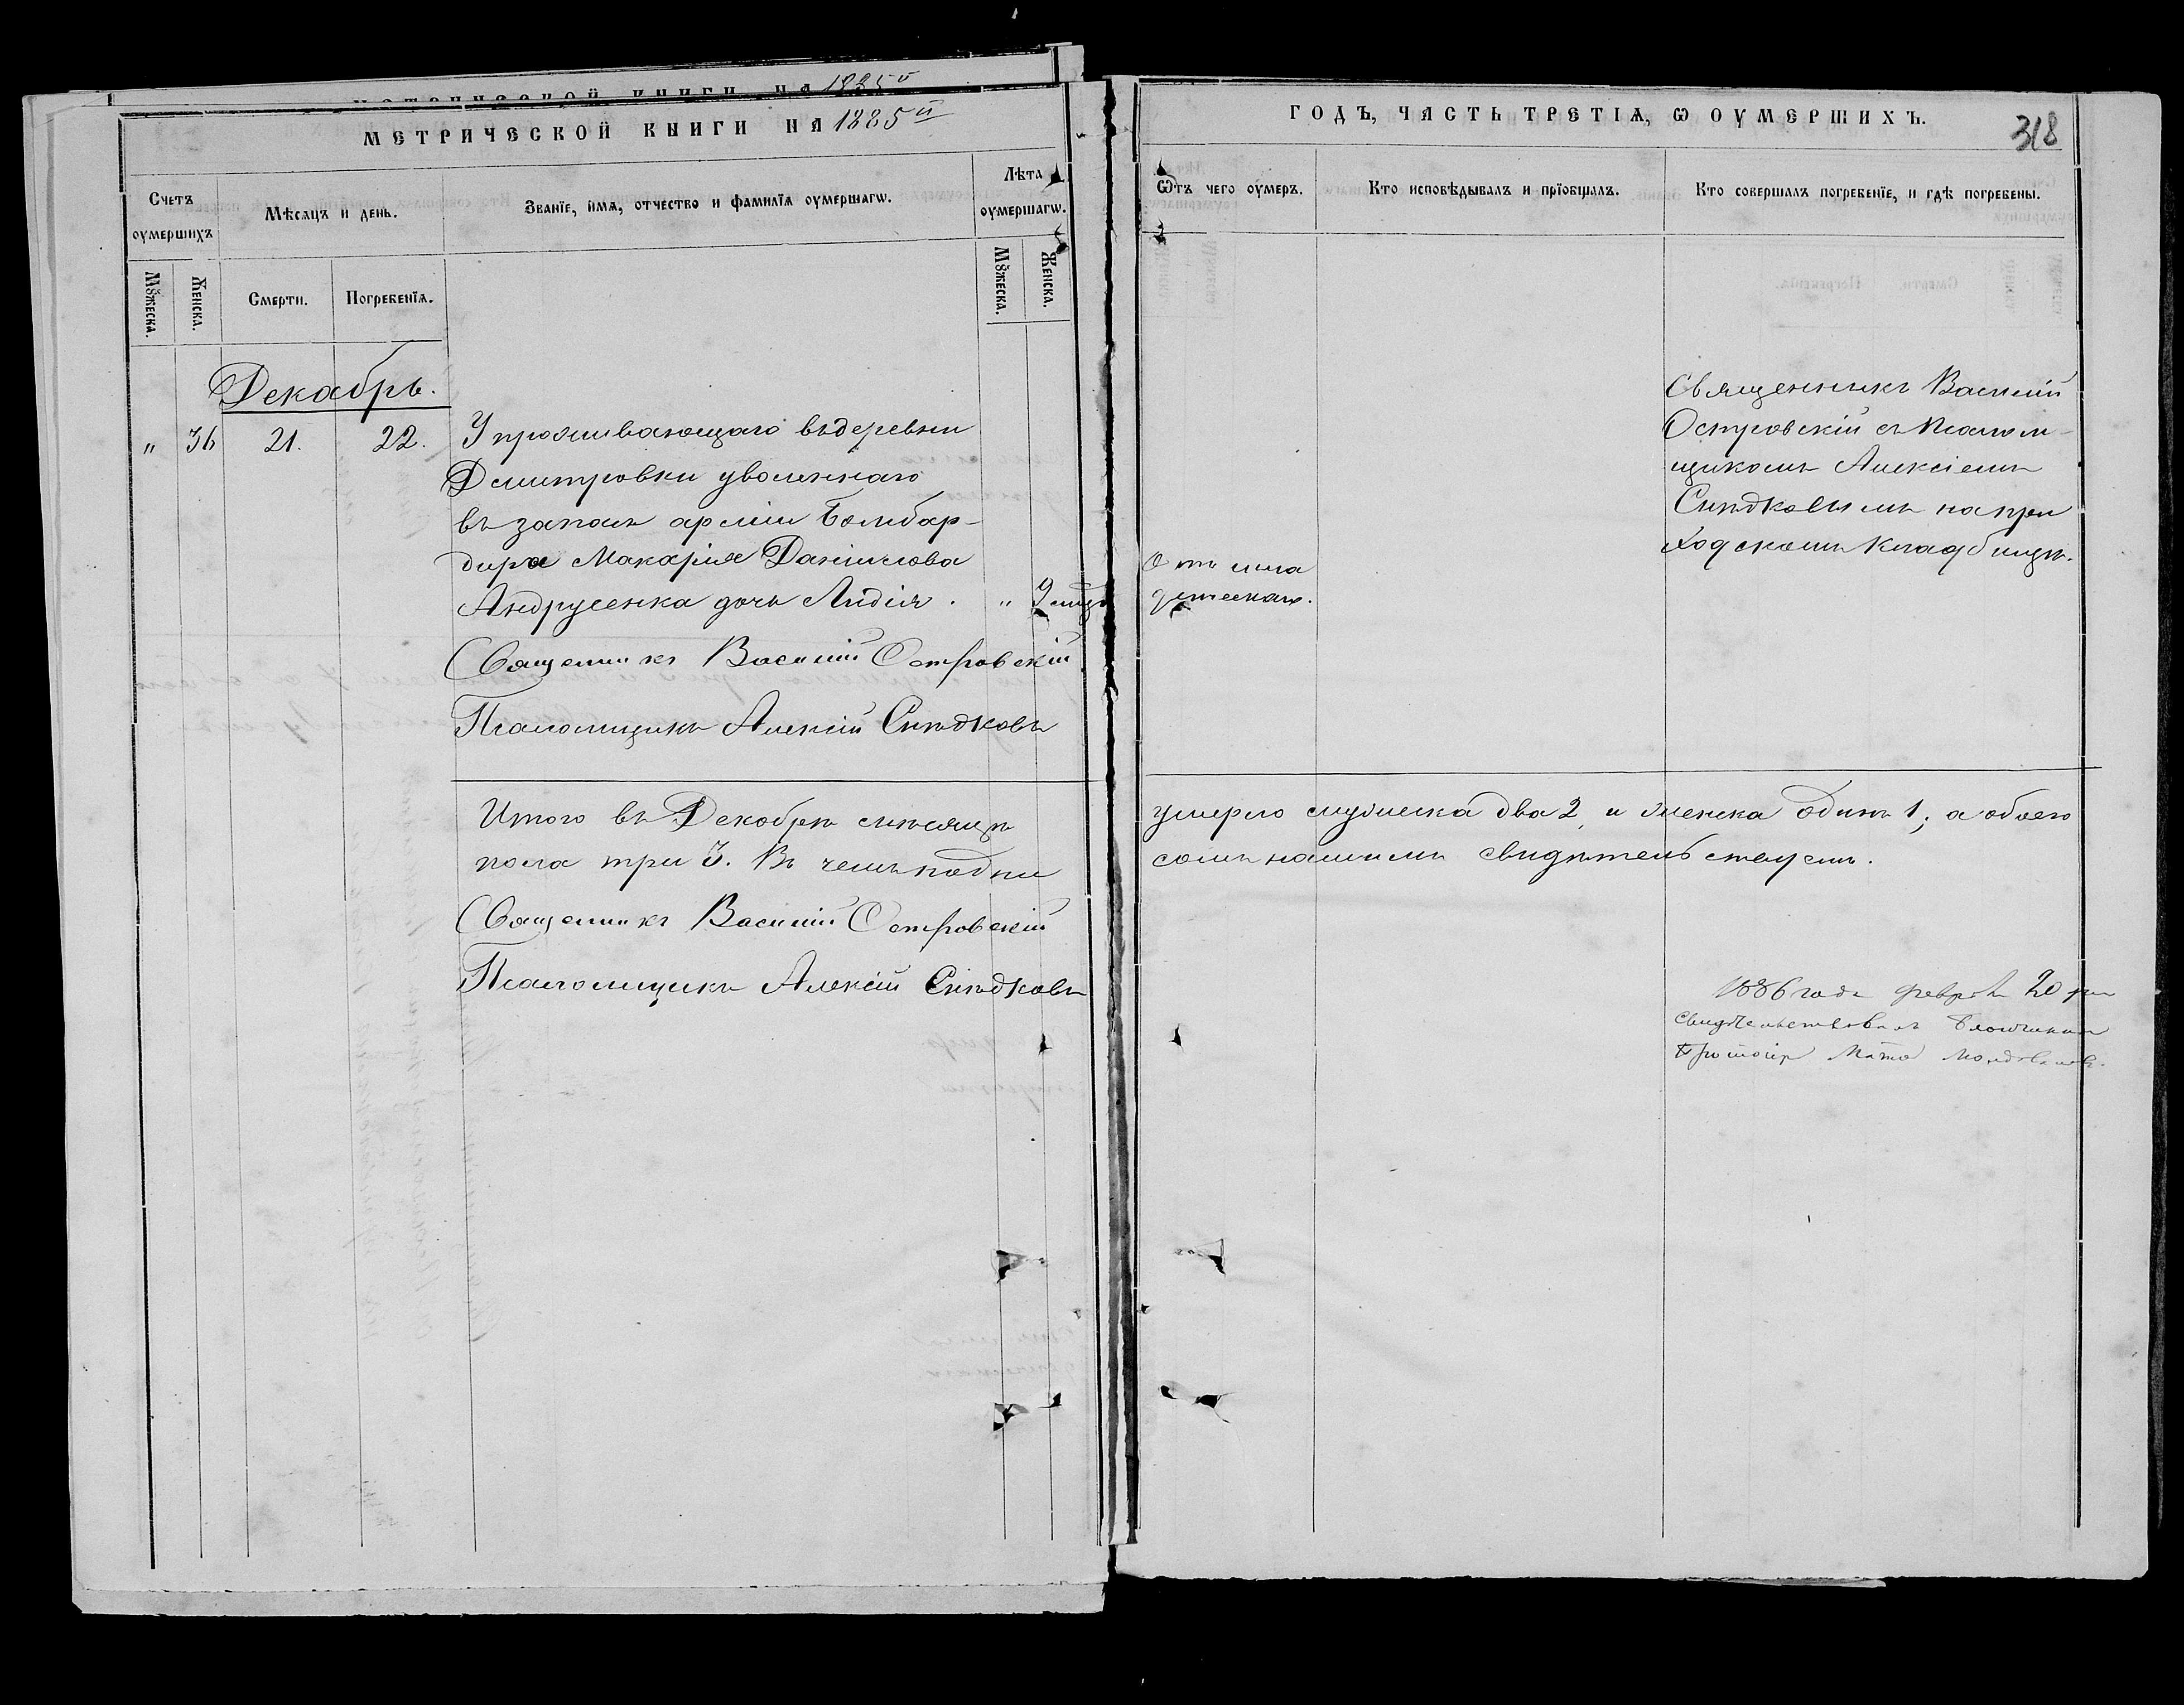 МЕТРИЧЕСКОЙ КНИГИ НА 1885й
ГОДЪ, ЧАСТЬ ТРЕТІѦ, Ѡ ОУМЕРШИХЪ.
318
Счетъ оумершихъ
Мѣсяцъ и день.
Званїе, имѧ, отчество и фамилїѧ оумершагѡ.
Лѣта оумершагѡ.
Ѿтъ чего оумеръ.
Кто исповѣдывалъ и прїобщалъ.
Кто совершалъ погребенїе, и гдѣ погребены.
Мꙋжеска.
Женска.
Смерти.
Погребенїѧ.
Мꙋжеска.
Женска.
Декабрь.
" 36 21. 22.
У проживающаго въ деревни
Дмитровки уволеннаго
въ запасъ арміи Бомбар-
дира Макарія Даніилова
Андрусенка дочь Лидія. " 9 мѣц.
Священникъ Василій Островскій
Псаломщикъ Алексій Снѣдковъ
Отъ
дѣтескаго.
Священникъ Василій
Островскій съ Псалом-
щикомъ Алексіемъ
Снѣдковымъ на при
ходскомъ кладбищѣ.
Итого въ Декабрѣ мѣсяцѣ умерло мужеска два 2, и женска одинъ 1; а обоего
пола три 3. Въ чемъ подпи сомъ нашимъ свидѣтельствуемъ.
Священникъ Василій Островскій
Псаломщикъ Алексій Снѣдковъ
1886 года февраля 20 дня
свидѣтельствовалъ Благочинный